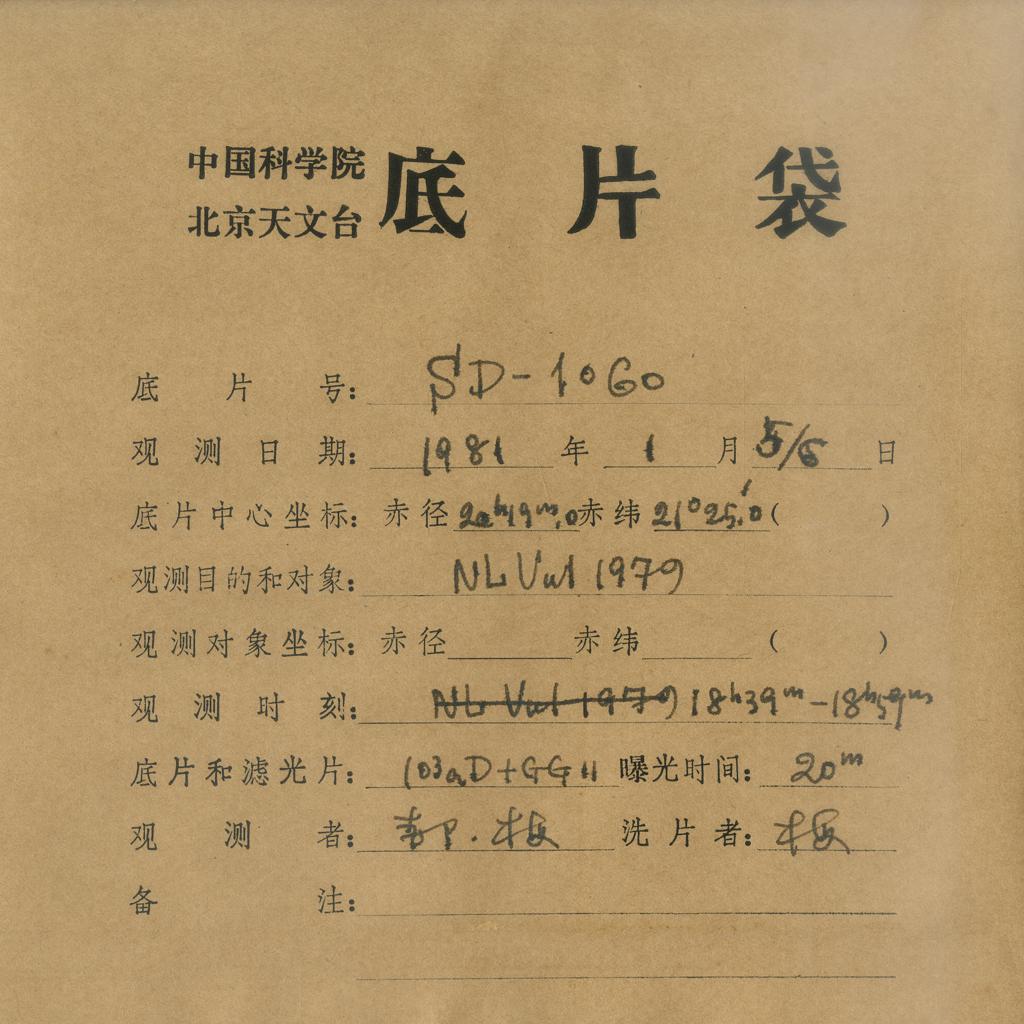 中国科学院
北京天文台
底片袋
底片号: SD-1060
观测日期: 1981年1月5/6日
底片中心坐标: 赤径 20h19m.0 赤纬 21°25'.0 ( )
观测目的和对象: NL Vul 1979
观测对象坐标: 赤径 赤纬 ( )
观测时刻: NL Vul 1979 18h39m-18h59m
底片和滤光片: 103aD+GG11 曝光时间: 20m
观测者: 郝. 梅 洗片者: 梅
备注: